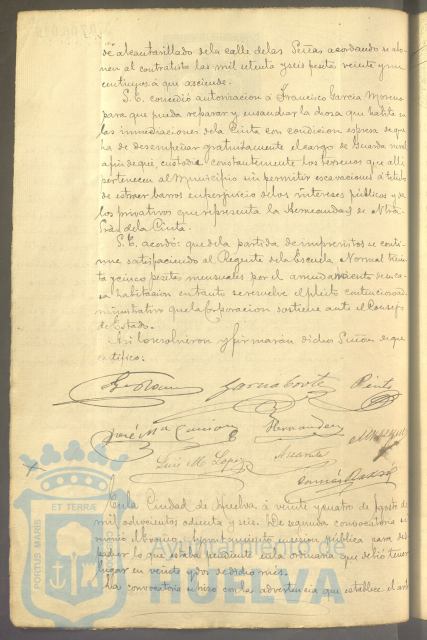 de alcantarillado de la calle de las Peñas acordando se abo-
nen al contratista las mil setenta y seis pesetas veinte y un
centimos á que asciende.
S.E. concedió autorizacion á Francisco Garcia Moreno
para que pueda reparar y ensanchar la choza que habita en
las inmediaciones de la Cinta con condicion espresa de que
ha de desempeñar gratuitamente el cargo de Guarda rural
afin de que, custodie constantemente los terrenos que alli
pertenecen al Municipio sin permitir escavaciones á titulo
de estraer barros en perjuicio de los intereses públicos y de
los privativos que representa la Hermandad de Ntra
Sra de la Cinta.
S.E. acordó: que de la partida de imprevistos se conti-
nue satisfaciendo al Regente de la Escuela Normal trein-
ta y cinco pesetas mensuales por el arrendamiento de su ca-
sa habitacion en tanto se resuelve el pleito contencioso ad-
ministrativo que la Corporacion sostiene ante el Consejo
de Estado.
Asi lo resolvieron y firmarán dichos Señores de que
certifico:
Pinto
José Ma
Hernandez
Luis M. Lopez
En la Ciudad de Huelva á veinte y cuatro de Agosto de
mil ochocientos ochenta y seis. De segunda convocatoria se
reunió el Excmo. Ayuntamiento en sesion pública para
lugar en veinte y dos de dicho mes.
La convocatoria se hizo con la advertencia que establece el art
PORTUS MARIS ET TERRÆ
Ayuntamiento de
HUELVA